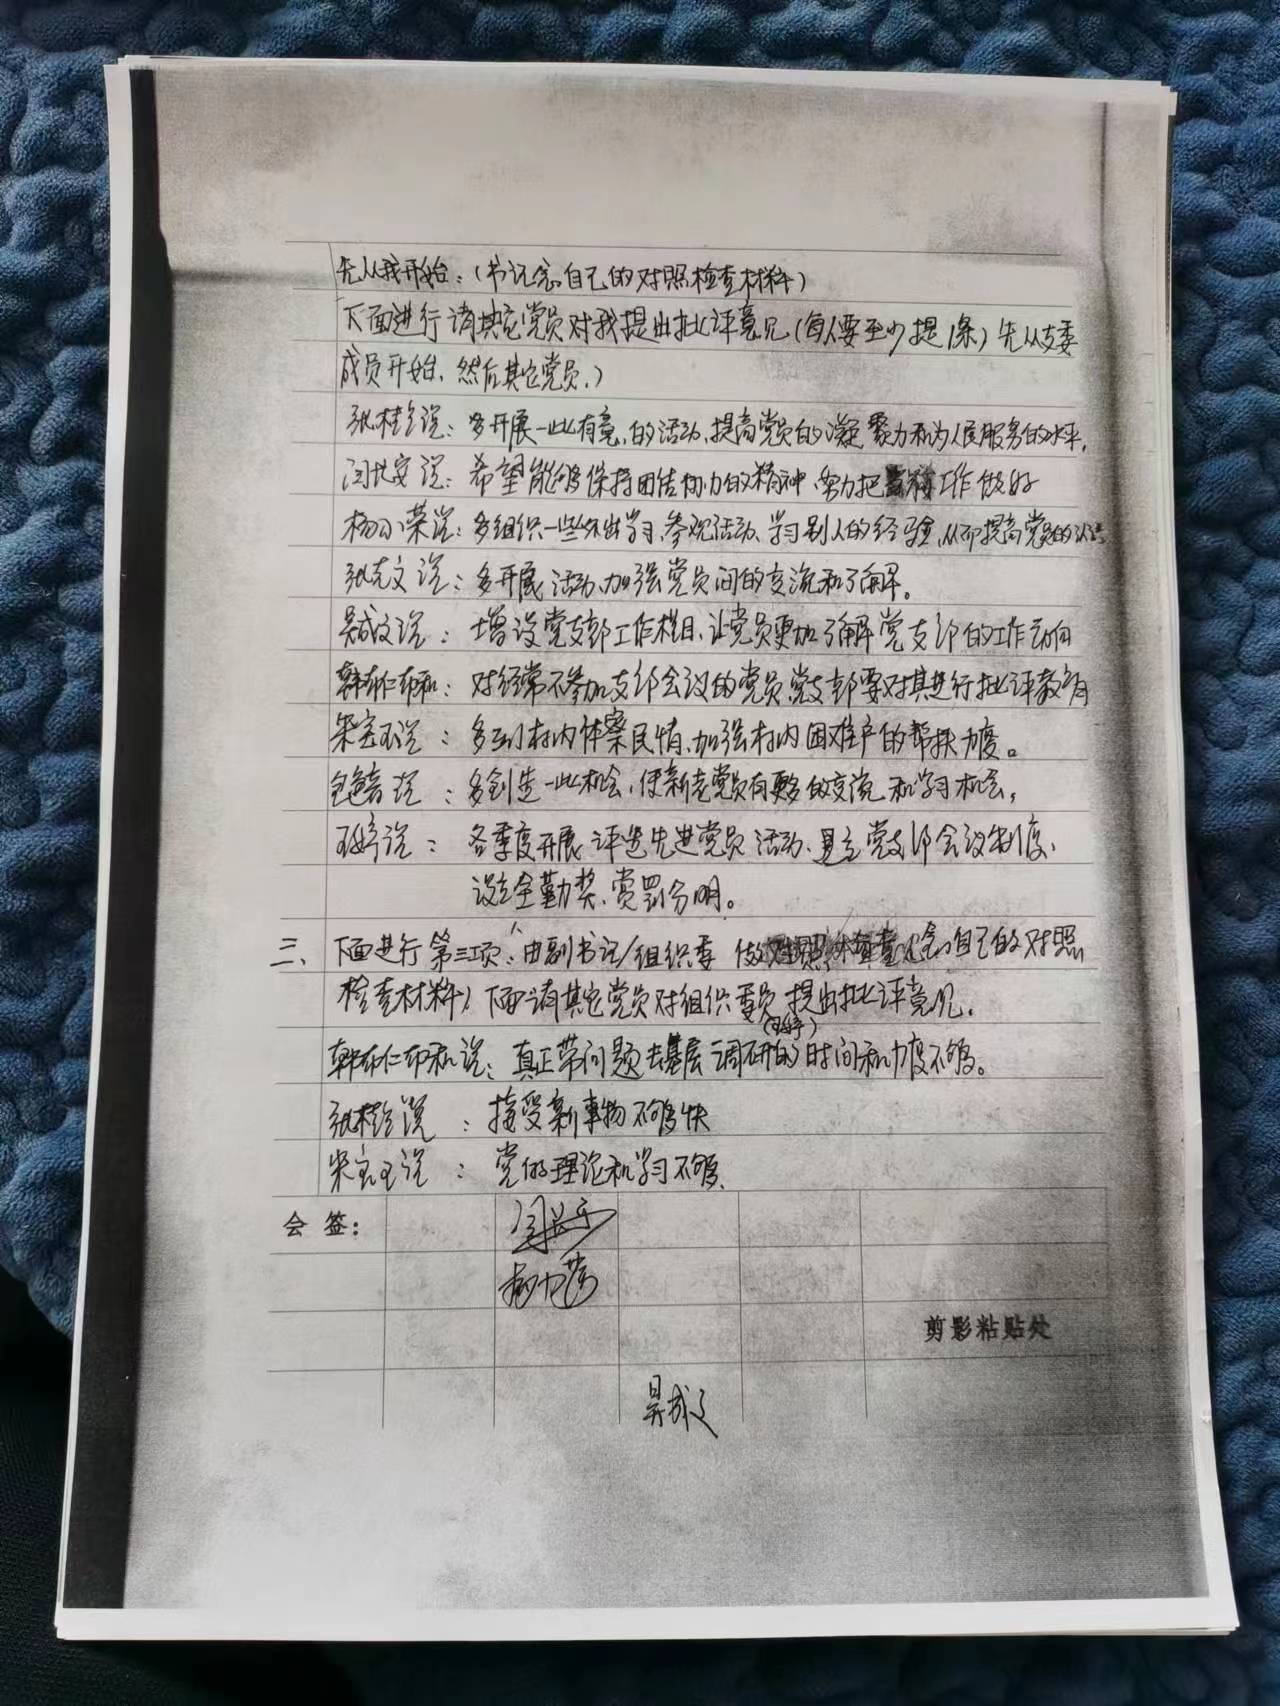 先从我开始:(书记念自己的对照检查材料)
下面进行请其它党员对我提出批评意见(每人要至少提1条)先从支委
成员开始、然后其它党员.)
张桂 说:多开展一些有意 的活动、提高党员的凝聚力和为人民服务的水平.
闫 说:希望能够保持团结协力的精神、努力把 工作做好
杨 荣说:多组织一些外出学习、参观活动、学习别人的经验、从而提高党员的认识
张志文说:多开展活动、加强党员间的交流和了解。
吴成文说:增设党支部工作栏目、让党员更加了解党支部的工作动向
韩布仁布和:对经常不参加支部会议的党员党支部要对其进行批评教育
宋宝玉说:多到村内体察民情、加强村内困难户的帮扶力度。
包 说:多创造一些机会、使新老党员有更多的交流和学习机会,
王婷说:各季度开展评选先进党员活动、建立党支部会议制度、
设立全勤奖、赏罚分明。
三、下面进行第三项:由副书记/组织委 做 念自己的对照
检查材料)下面请其它党员对组织委员提出批评意见.
(王婷)
韩布仁布和说:真正带问题去基层调研的时间和力度不够。
张桂 说:接受新事物不够快
宋宝玉说:党的理论和学习不够、
会签:
剪影粘贴处
吴成文